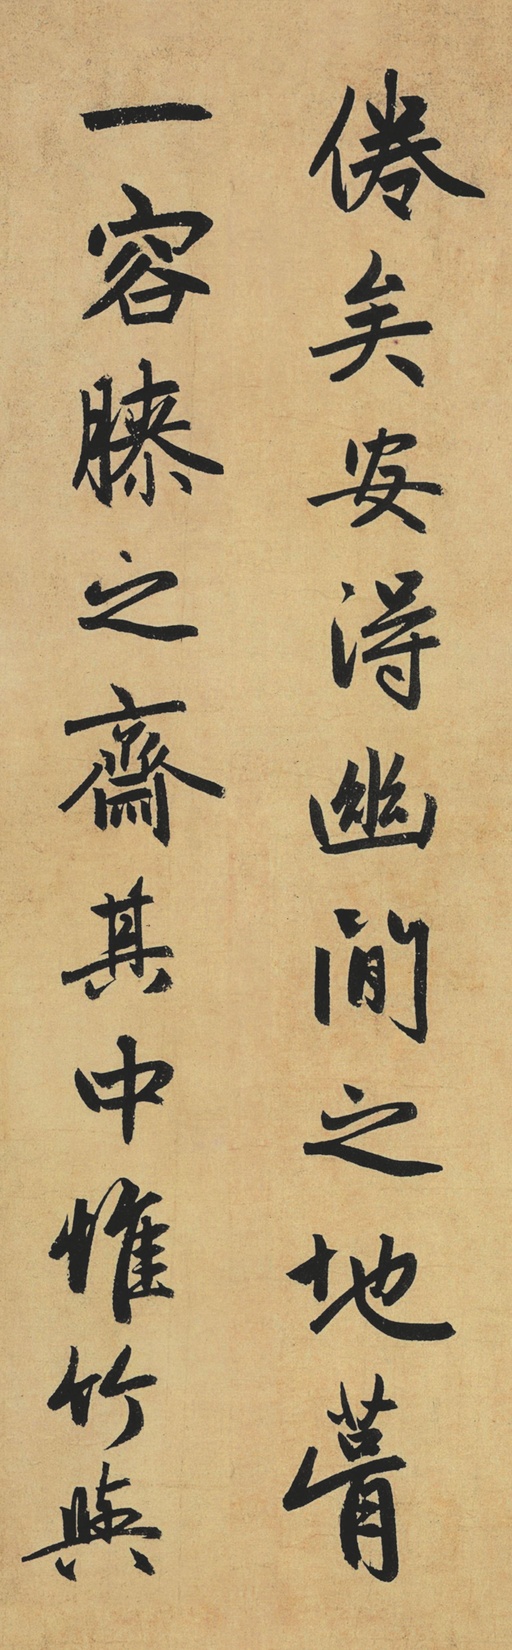 倦矣安得幽閒之地
一容膝之齋其中惟竹與